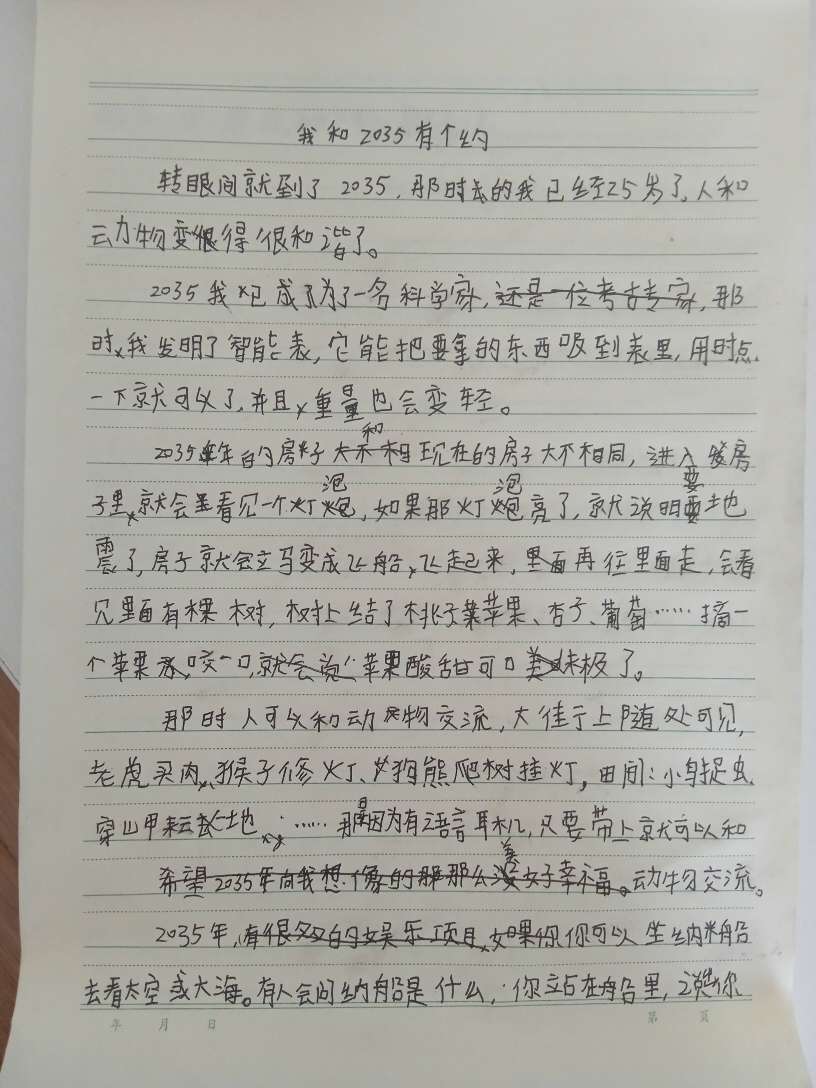 我和2035有个约
转眼间就到了2035，那时候的我已经25岁了，人和
动物变得很和谐了。
2035我已成为了一名科学家，还是一位考古专家，那
时，我发明了智能表，它能把要拿的东西吸到表里，用时点
一下就可以了，并且重量也会变轻。
2035年的房子和现在的房子大不相同，进入房
子里，就会看见一个灯泡，如果那灯泡亮了，就说明要地
震了，房子就会立马变成飞船，飞起来，里面再往里面走，会看
见里面有棵树，树上结了桃子、苹果、杏子、葡萄……摘一
个苹果，咬一口，就会说：苹果酸甜可口美味极了。
那时人可以和动物交流，大街上随处可见，
老虎买肉，猴子修灯、狗熊爬树挂灯，田间：小鸟捉虫
穿山甲耘土地……那是因为有语言耳机，只要带上就可以和
希望2035年向我想像的那那么美好幸福。动物交流。
2035年，有很多的娱乐项目，如果你你可以坐纳米船
去看太空或大海。有人会问纳船是什么，你立占在船里，说出你
年 月 日 第 页